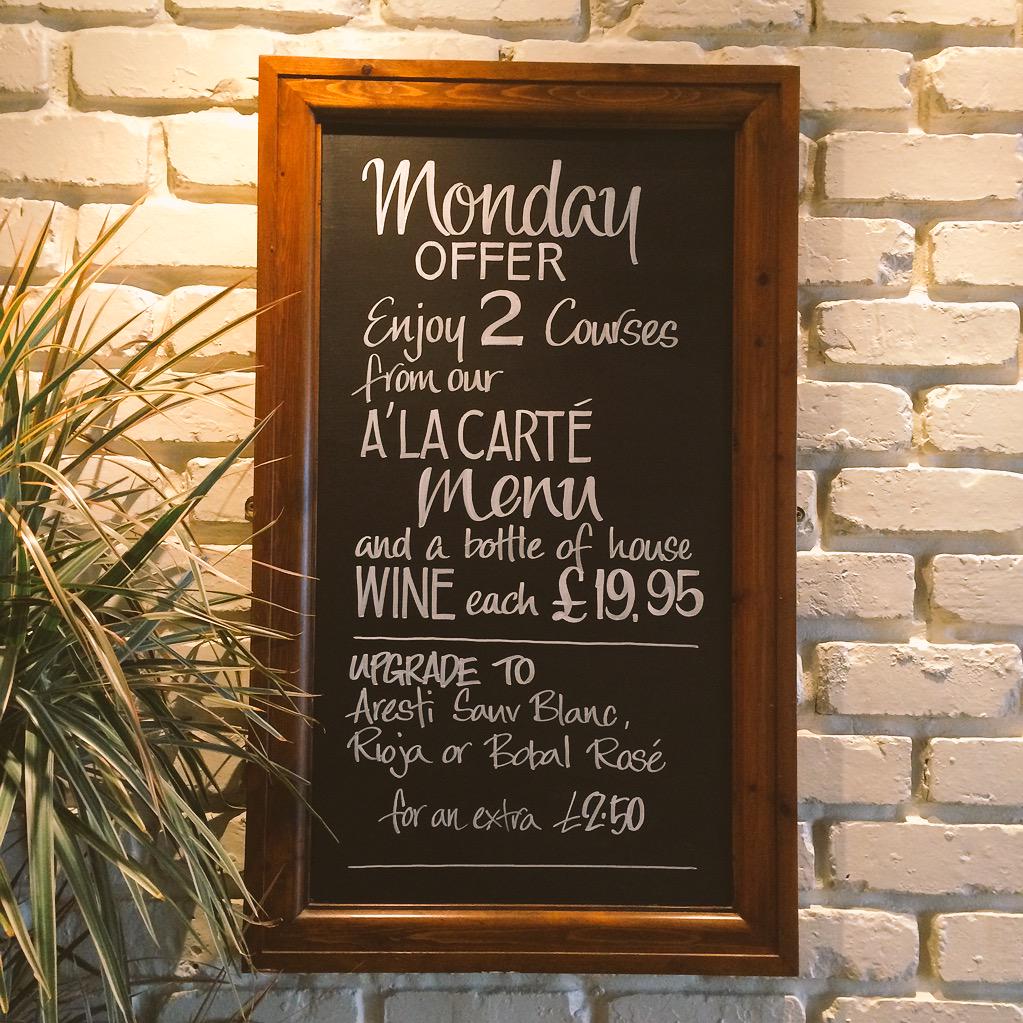 Monday
OFFER
Enjoy 2 Courses
from our
A'LA CARTÉ
Menu
and a bottle of house
WINE each £19.95
UPGRADE TO
Aresti Sauv Blanc,
Rioja or Bobal Rosé
for an extra £2.50